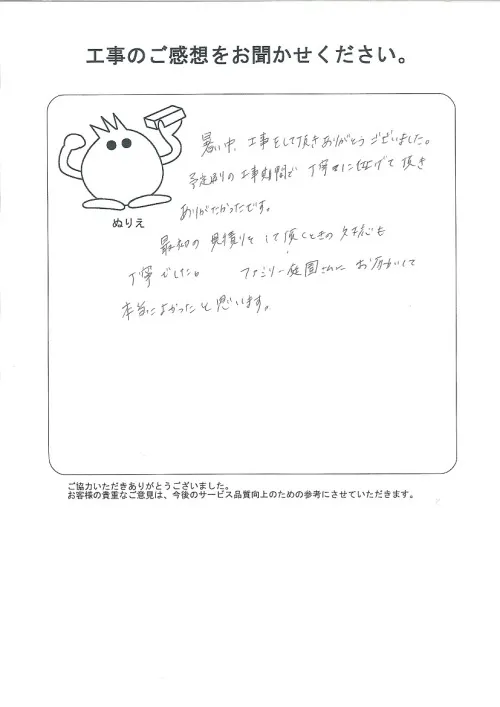 工事のご感想をお聞かせください。
暑い中、工事をして頂きありがとうございました。
予定通りの工事期間で丁寧に仕上げて頂き
ありがたかったです。
最初の見積りをして頂くときの対応も
丁寧でした。 ファミリー庭園さんにお願いして
本当によかったと思います。
ぬりえ
ご協力いただきありがとうございました。
お客様の貴重なご意見は、今後のサービス品質向上のための参考にさせていただきます。